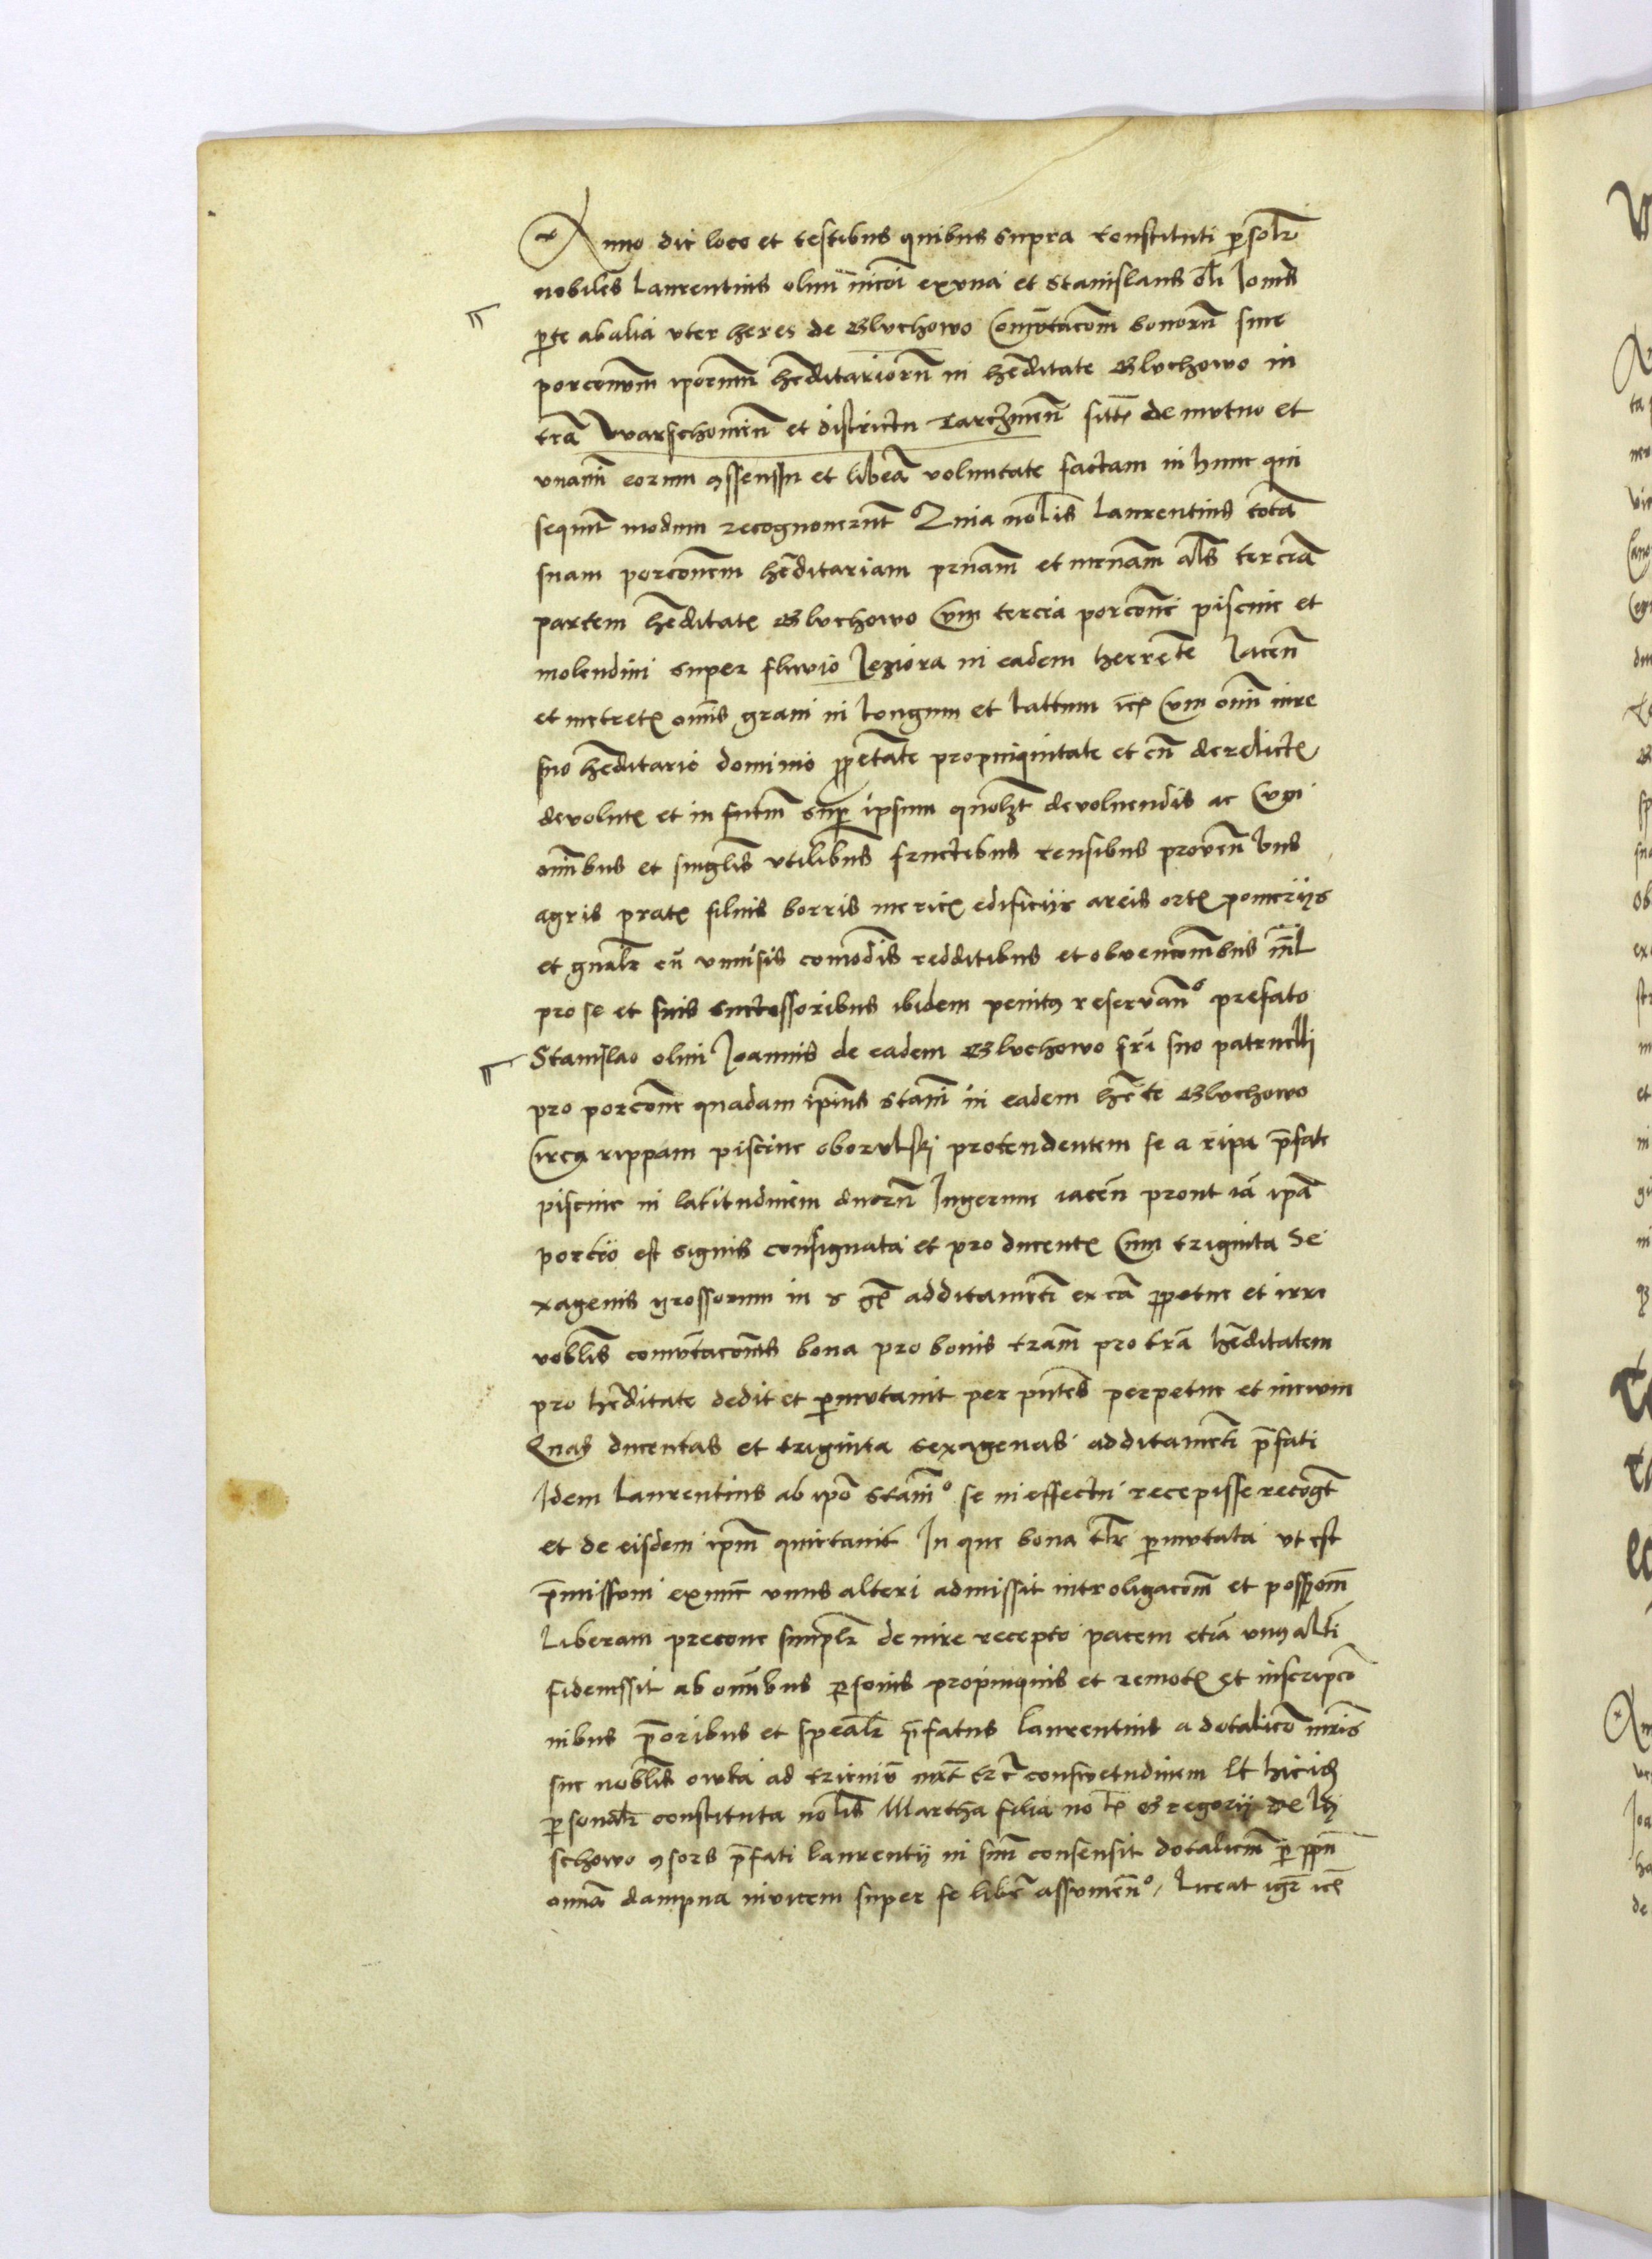 Anno die loco et testibus quibus supra constituti personlr
nobiles Laurentius olim nicoi ex vna et Stanislaus oli Joanis
pte ab alia vter heres de Gluchowo Comutacom bonorum siue
porconum ipsorum heditariorum in heditate Gluchowo in
tra Warschouien et districtu Tarczinen sitis de mutuo et
vnanim eorum assensu et libera voluntate factam in hunc qui
sequit modum recognouerunt Quia nolis Laurentius tota
suam porconem heditariam prnam et mrnam als tercia
partem heditatis Gluchowo cum tercia porcone piscine et
molendini super fluuio Jeziora in eadem herete Jacen
et metretis omis grani in longum et lattum cum omi iure
suo heditario dominio ppetate propinquitate et derelictis
deuolutis et in futm sup ipsum quolzt deuoluendis ac cum
omibus et singlis vtilibus fructibus censibus prouen bus
agris pratis siluis borris mericis edificiis areis ortis pomeriis
et gnalr cu vniuersis comodis redditibus et obuencombus nil
pro se et suis successoribus ibidem penitus reseruano prefato
Stanislao olim Joannis de eadem Gluchowo fri suo patrueli
pro porcone quadam ipius Stani in eadem hete Gluchowo
Circa rippam piscine oborulski protendentem se a ripa pfate
piscine in latitudinem duorum Jugerum iacen prout ia ipa
portio est signis consignata et pro ducentis cum triginta Se
xagenis grossorum in additamenti ex ca ppetue et irre
uoblis comutacois bona pro bonis tram pro tra heditatem
pro heditate dedit et pmutauit per pntes perpetue et ineuum
Quas ducentas et triginta sexagenas additamenti pfati
Idem Laurentius ab ipo Stanio se in effectu recepisse recogt
et de eisdem ipm quietauit In que bona tlr pmutata ut est
pmissum ex nunc vnus alteri admissit introligacom et possom
Liberam precone simplr de iure recepto pacem etia vnus alti
fideiussit ab omibus psonis propinquis et remotis et inscripco
nibus pioribus et spealr pfatus Laurentius a dotalicio mris
sue noblis ad trieniu consuetudinem
psonalr constituta nolis Martha filia nolis Gregorij de
schowo cosors pfati Laurentij in sum consensit dotalicium
omia dampna inuicem super se libe assumeno, Liceat igr